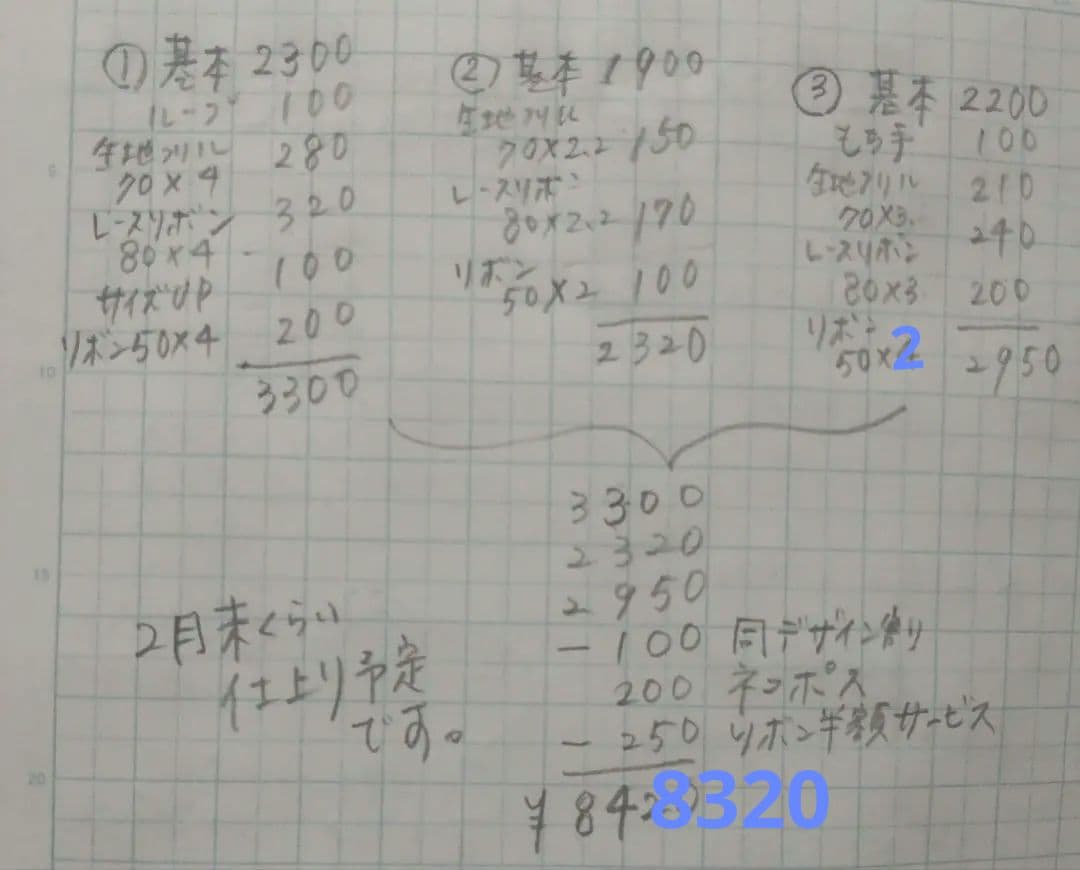 ① 基本 2300
ループ 100
生地フリル 280
70×4
レースリボン 320
80×4
サイズUP 100
リボン50×4 200
3300
② 基本 1900
生地フリル
70×2.2 150
レースリボン
80×2.2 170
リボン
50×2 100
2320
③ 基本 2200
もち手 100
生地フリル 210
70×3.
レースリボン 240
80×3 200
リボン
50×2
2950
3300
2320
2950
-100 同デザイン割り
200 ネコポス
-250 リボン半額サービス
¥842
8320
2月末くらい
仕上り予定
です。
5
10
15
20